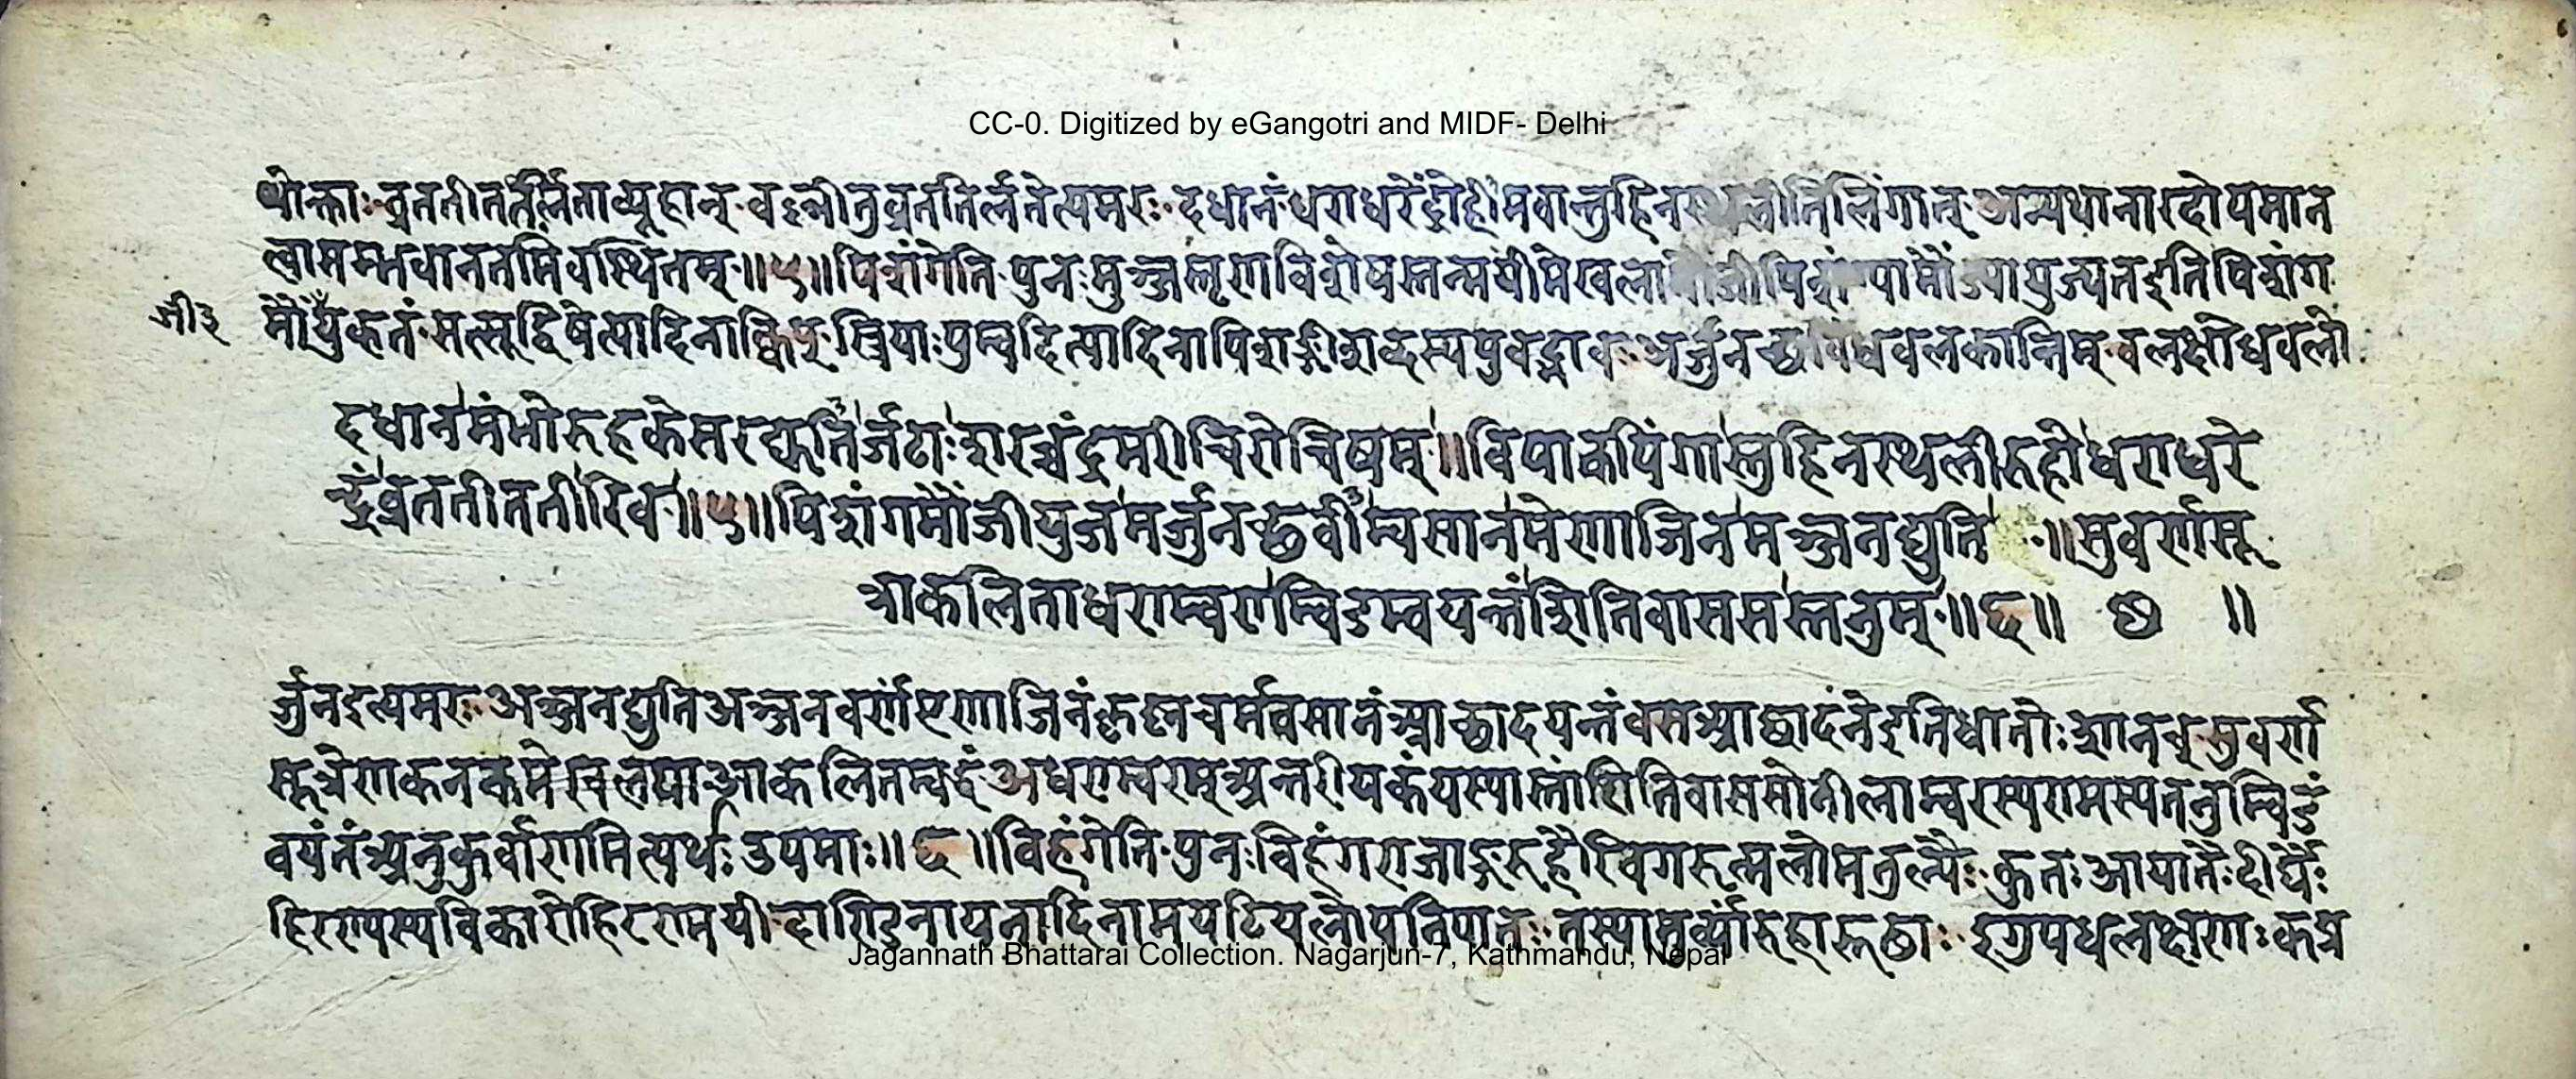 CC-0. Digitized by eGangotri and MIDF- Delhi
थोक्ताः व्रततीततर्लताव्यूहान् वल्लीतुव्रततिर्लतेत्यमरः दधानंधराधरेंद्रोहिमवान्तुहिनस्थलीतिलिंगात् अन्यथानारदोपमान
त्वासम्भवानतमिवस्थितम् ॥५॥ पिशंगेति पुनः मुञ्जस्तृणविशेषस्तन्मयीमेखला पिशं मौंज्यायुज्यतइतिपिशंग
जी३
मौंयुक्तं सत्सूद्विषेत्यादिनाक्विप् स्त्रियाःपुम्वदित्यादिनापिशङ्गीशब्दस्यपुवद्भावः अर्जुनच्छविंधवलकान्तिम् वलक्षोधवलो
दधानमंभोरुहकेसरद्युतीर्जटाःशरच्चंद्रमरीचिरोचिषम् ॥ विपाकपिंगास्तुहिनस्थलीरुहोधराधरे
न्द्रंव्रततीततीरिव ॥५॥ पिशंगमौंजीयुजमर्जुनच्छवीम्वसानमेणाजिनमञ्जनद्युति ॥ सुवर्णसू
त्राकलिताधराम्वराम्विडम्वयन्तंशितिवाससस्तनुम् ॥६॥ ॥
र्जुनइत्यमरः अञ्जनद्युतिअञ्जनवर्णंएणाजिनंकृष्णचर्मवसानंआच्छादयन्तंवसआच्छादनेइतिधातोःशानच् सुवर्ण
सूत्रेणकनकमेखलयाआकलितम्वद्धंअधराम्वरम्अन्तरीयकंयस्यास्तांशितिवाससोनीलाम्वरस्यरामस्यतनुम्विडं
वयंतंअनुकुर्वाणमित्यर्थः उपमाः ॥६॥ विहंगेति पुनःविहंगराजाङ्गरुहैरिवगरुत्मलोमतुल्यैः कुतः आयातैः दीर्घैः
हिरण्यस्यविकारोहिरण्मयी दाण्डिनायनादिनामयटियलोपनिपातः तस्यामुर्व्यांरुहारूढाः इगुपधलक्षणः कप्र
Jagannath Bhattarai Collection. Nagarjun-7, Kathmandu, Nepal